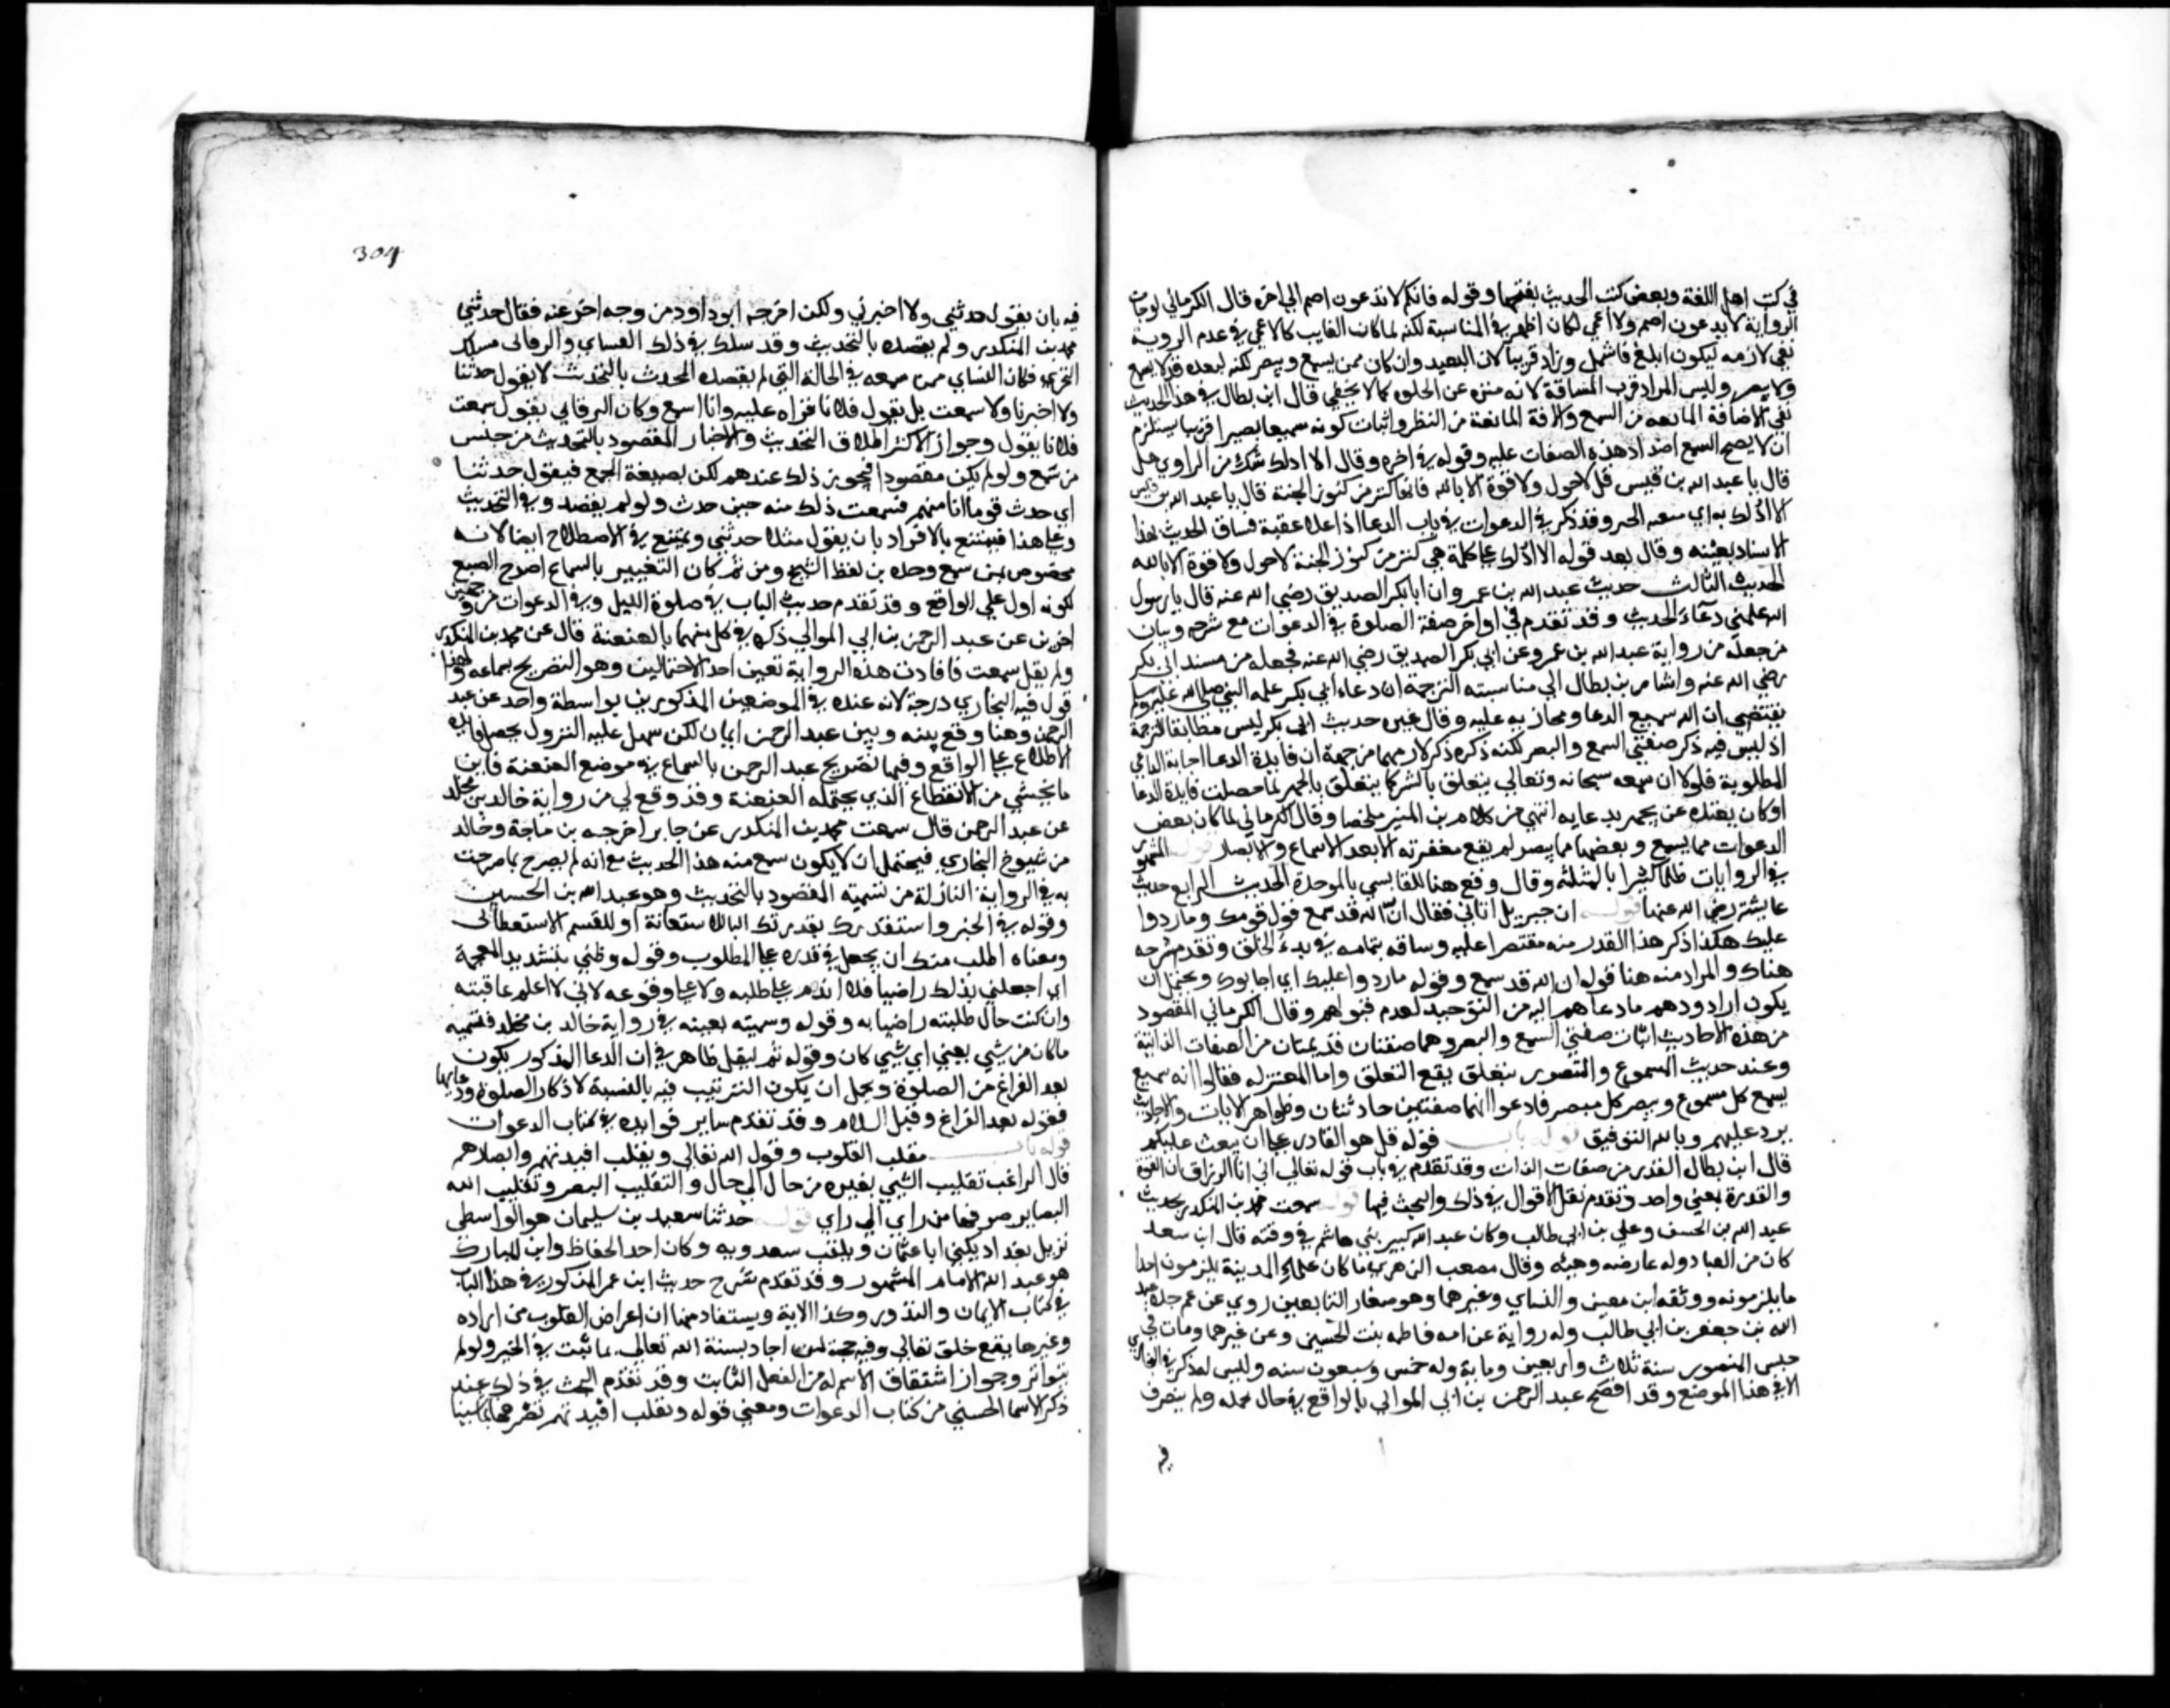 في كتب اهل اللغة وبعض كتب الحديث بفتحها وقوله فانكم لا تدعون اصم الي اخره قال الكرماني لو جات
الرواية لا يدعون اصم ولا اعمي لكان اظهر في المناسبة لكنه لما كان الغايب كالاعمي في عدم الروية
نفي لازمه ليكون ابلغ فاشمل وزاد قريبا لان البعيد وان كان ممن يسمع ويبصر لكنه لبعده قد لا يسمع
ولا يبصر وليس المراد قرب المسافة لانه منزه عن الحلول كما لا يخفي قال ابن بطال في هذا الحديث
نفي الافة المانعه من السمع والافة المانعة من النظر واثبات كونه سميعا بصيرا قريبا يستلزم
ان لا يصح السمع اضداد هذه الصفات عليه وقوله في اخره وقال الا ادلك شك من الراوي هل
قال يا عبد الله بن قيس قل لا حول ولا قوة الا بالله فانها كنز من كنوز الجنة قال يا عبد الله بن قيس
الا ادلك به اي ببقية الخبر وقد ذكر في الدعوات في باب الدعا اذا علا عقبة فساق الحديث بهذا
الاسناد بعينه وقال بعد قوله الا ادلك علي كلمة هي كنز من كنوز الجنة لا حول ولا قوة الا بالله
الحديث الثالث حديث عبد الله بن عمرو ان ابا بكر الصديق رضي الله عنه قال يا رسول
الله علمني دعاء الحديث وقد تقدم في اواخر صفة الصلوة وفي الدعوات مع شرحه وبيان
من جعله من رواية عبد الله بن عمرو عن ابي بكر الصديق رضي الله عنه فجعله من مسند ابي بكر
رضي الله عنه واشار بن بطال الي مناسبته الترجمة ان دعاء ابي بكر علمه النبي صلي الله عليه وسلم
يقتضي ان الله سميع الدعا ومجاز به عليه وقال غيره حديث ابي بكر ليس مطابقا للترجمة
اذ ليس فيه ذكر صفتي السمع والبصر لكنه ذكره ذكر لازمهما من جهة ان فايدة الدعا اجابة الداعي
المطلوبة فلولا ان سمعه سبحانه وتعالي يتعلق بالسر كما يتعلق بالجهر لما حصلت فايدة الدعا
او كان يقيده عن يجهر بدعايه انتهي من كلام بن المنير ملخصا وقال الكرماني لما كان بعض
الدعوات مما يسمع وبعضها مما يبصر لم يقع مغفرته الا بعد الاسماع والابصار قوله المشهور
في الروايات ظلما كثيرا بالمثلثه وقال وقع هنا للقابسي بالموحدة الحديث الرابع حديث
عايشة رضي الله عنها قوله ان جبريل اتاني فقال ان الله قد سمع قول قومك وما ردوا
عليك هكذا ذكر هذا القدر منه مقتصرا عليه وساقه بتمامه في بدء الخلق وتقدم شرحه
هناك والمراد منه هنا قوله ان الله قد سمع وقوله ما ردوا عليك اي اجابوك ويحتمل ان
يكون اراد ودهم ما دعاهم اليه من التوحيد لعدم قبولهم وقال الكرماني المقصود
من هذه الاحاديث اثبات صفتي السمع والبصر وهما صفتان قديمتان من الصفات الذاتية
وعند حديث المسموع والمتصور يتعلق يقع التعلق واما المعتزله فقالوا انه سميع
يسمع كل مسموع ويبصر كل مبصر فادعوا انهما صفتين حادثتان وظواهر الايات والاحاديث
يرد عليهم وبالله التوفيق قوله باب قوله قل هو القادر علي ان يبعث عليكم
قال ابن بطال القدرة من صفات الذات وقد تقدم في باب قوله تعالي اني انا الرزاق ان القوة
والقدرة بمعني واحد وتقدم نقل الاقوال في ذلك والبحث فيها قوله سمعت محمد بن المنكدر يحدث
عبد الله بن الحسن وعلي بن ابي طالب وكان عبد الله كبير بني هاشم في وقته قال ابن سعد
كان من العباد وله عارضه وهيئه وقال مصعب الزهري ما كان علماء المدينة يلزمون احدا
ما يلزمونه ووثقه ابن معين والنساي وغيرهما وهو من صغار التابعين روي عن عم جده عبد
الله بن جعفر بن ابي طالب وله رواية عن امه فاطمه بنت الحسين وعن غيرهما ومات في
حبس المنصور سنة ثلاث واربعين وماية وله خمس وسبعون سنه وليس له ذكر في البخاري
الا في هذا الموضع وقد افصح عبد الرحمن بن ابي الموالي بالواقع في حال تحمله ولم يتصرف
فيه
304
فيه بان يقول حدثني ولا اخبرني ولكن اخرجه ابو داود من وجه اخر عنه فقال حدثني
محمد بن المنكدر ولم يقصده بالتحديث وقد سلك في ذلك النساي والبرقاني مسلك
التحري فكان النساي ممن سمعه في الحالة التي لم يقصده المحدث بالتحديث لا يقول حدثنا
ولا اخبرنا ولا سمعت بل يقول فلانا قراه عليه وانا اسمع وكان البرقاني يقول سمعت
فلانا يقول وجواز الاكثر اطلاق التحديث والاخبار المقصود بالتحديث من جنس
من سمع ولو لم يكن مقصودا فيجوز ذلك عندهم لكن بصيغة الجمع فيقول حدثنا
اي حدث قوما انا منهم فسمعت ذلك منه حين حدث ولو لم يقصد وفي التحديث
وعلي هذا فيمتنع بالافراد بان يقول مثلا حدثني ويمتنع في الاصطلاح ايضا لانه
مخصوص بمن سمع وحده من لفظ الشيخ ومن ثم كان التعبير بالسماع اصرح الصيغ
لكونه ادل علي الواقع وقد تقدم حديث الباب في صلوة الليل وفي الدعوات من وجهين
اخرين عن عبد الرحمن بن ابي الموالي ذكره في كل منهما بالعنعنة قال عن محمد بن المنكدر
ولم يقل سمعت فافادت هذه الرواية تعين احد الاحتمالين وهو التصريح بسماعه ولهذا
قول فيه البخاري درجة لانه عنده في الموضعين المذكورين بواسطة واحد عن عبد
الرحمن وهنا وقع بينه وبين عبد الرحمن اثنان لكن سهل عليه النزول بحصول فايدة
الاطلاع علي الواقع وفيها تصريح عبد الرحمن بالسماع في موضع العنعنة فامن
ما يخشي من الانقطاع الذي يحتمله العنعنة وقد وقع لي من رواية خالد بن مخلد
عن عبد الرحمن قال سمعت محمد بن المنكدر عن جابر اخرجه بن ماجة وخالد
من شيوخ البخاري فيحتمل ان لا يكون سمع منه هذا الحديث مع انه لم يصرح بما صرحت
به في الرواية النازلة من تسمية المقصود بالتحديث وهو عبد الله بن الحسين
وقوله في الخبر واستقدرك بقدرتك البا للاستعانة او للقسم الاستعطافي
ومعناه اطلب منك ان يجعل لي قدره علي المطلوب وقوله وظني بتشديد المعجمة
اي اجعلني بذلك راضيا فلا اندم علي طلبه ولا علي وقوعه لاني لا اعلم عاقبته
وان كنت حال طلبته راضيا به وقوله وسميته بعينه في رواية خالد بن مخلد فتسميه
ما كان من شي يعني اي شي كان وقوله ثم ليقل ظاهر في ان الدعا المذكور يكون
بعد الفراغ من الصلوة ويحتمل ان يكون الترتيب فيه بالنسبة لاذكار الصلوة ودعايها
فقوله بعد الفراغ وقبل السلام وقد تقدم ساير فوايده في كتاب الدعوات
قوله باب مقلب القلوب وقول الله تعالي ونقلب افيدتهم وابصارهم
قال الراغب تقليب الشي بغيره من حال الي حال والتقليب البصر وتقليب الله
البصاير صرفها من راي الي راي قوله حدثنا سعيد بن سليمان هو الواسطي
نزيل بغداد يكني ابا عثمان ويلقب سعدويه وكان احد الحفاظ وابن المبارك
هو عبد الله الامام المشهور وقد تقدم شرح حديث ابن عمر المذكور في هذا الباب
في كتاب الايمان والنذور وكذا الاية ويستفاد منها ان اعراض القلوب من اراده
وغيرها يقع خلق تعالي وفيه حجة لمن اجاد بسنة الله تعالي بما ثبت في الخبر ولو لم
يتواتر وجواز اشتقاق الاسم له من الفعل الثابت وقد تقدم البحث في ذلك عند
ذكر الاسما الحسني من كتاب الدعوات ومعني قوله ونقلب افيدتهم نصرفها بما شينا